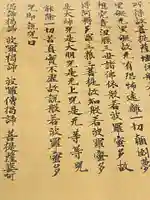 罣礙故無有恐怖遠離一切顛倒夢
想究竟涅槃三世諸佛依般若波羅蜜多故
得阿耨多羅三藐三菩提故知般若波羅蜜多
是大神咒是大明咒是無上咒是無等等咒
能除一切苦真實不虛故說般若波羅蜜多
咒即說咒曰
揭諦揭諦 波羅揭諦 波羅僧揭諦 菩提薩婆訶